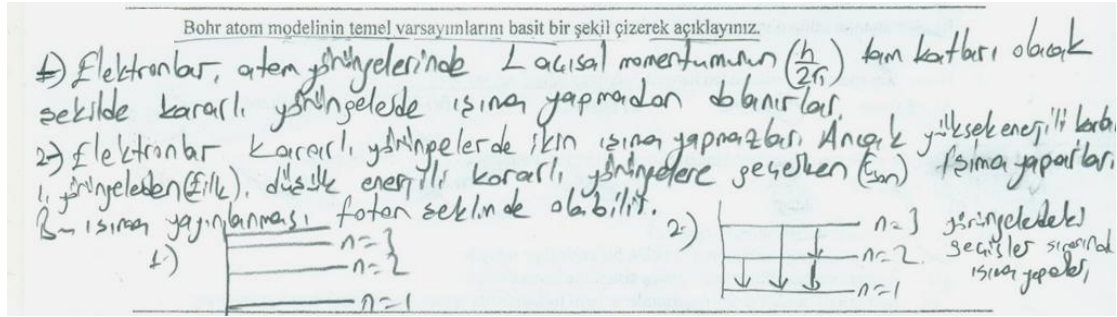 Bohr atom modelinin temel varsayımlarını basit bir şekil çizerek açıklayınız.
1) Elektronlar, atom yörüngelerinde L açısal momentumunun (h/2π) tam katları olacak
şekilde kararlı yörüngelerde ışıma yapmadan dolanırlar.
2) Elektronlar kararlı yörüngelerde iken ışıma yapmazlar. Ancak yüksek enerjili kararlı
yörüngelerden (Eilk), düşük enerjili kararlı yörüngelere geçerken (Eson) ışıma yaparlar.
Bu ışıma yayınlanması foton şeklinde olabilir.
1)
n=3
n=2
n=1
2)
n=3
n=2
n=1
yörüngelerdeki
geçişler sırasında
ışıma yaparlar